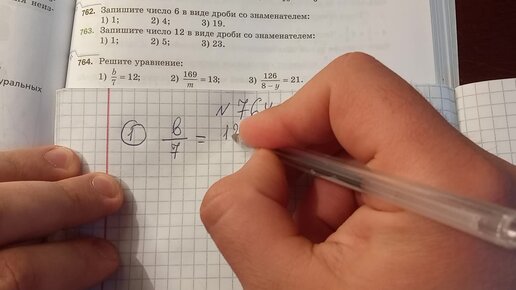 неиз-
762. Запишите число 6 в виде дроби со знаменателем:
1) 1; 2) 4; 3) 19.
763. Запишите число 12 в виде дроби со знаменателем:
1) 1; 2) 5; 3) 23.
764. Решите уравнение:
1) b/7 = 12; 2) 169/m = 13; 3) 126/(8 − y) = 21.
туральных
N 764
1) b/7 = 12